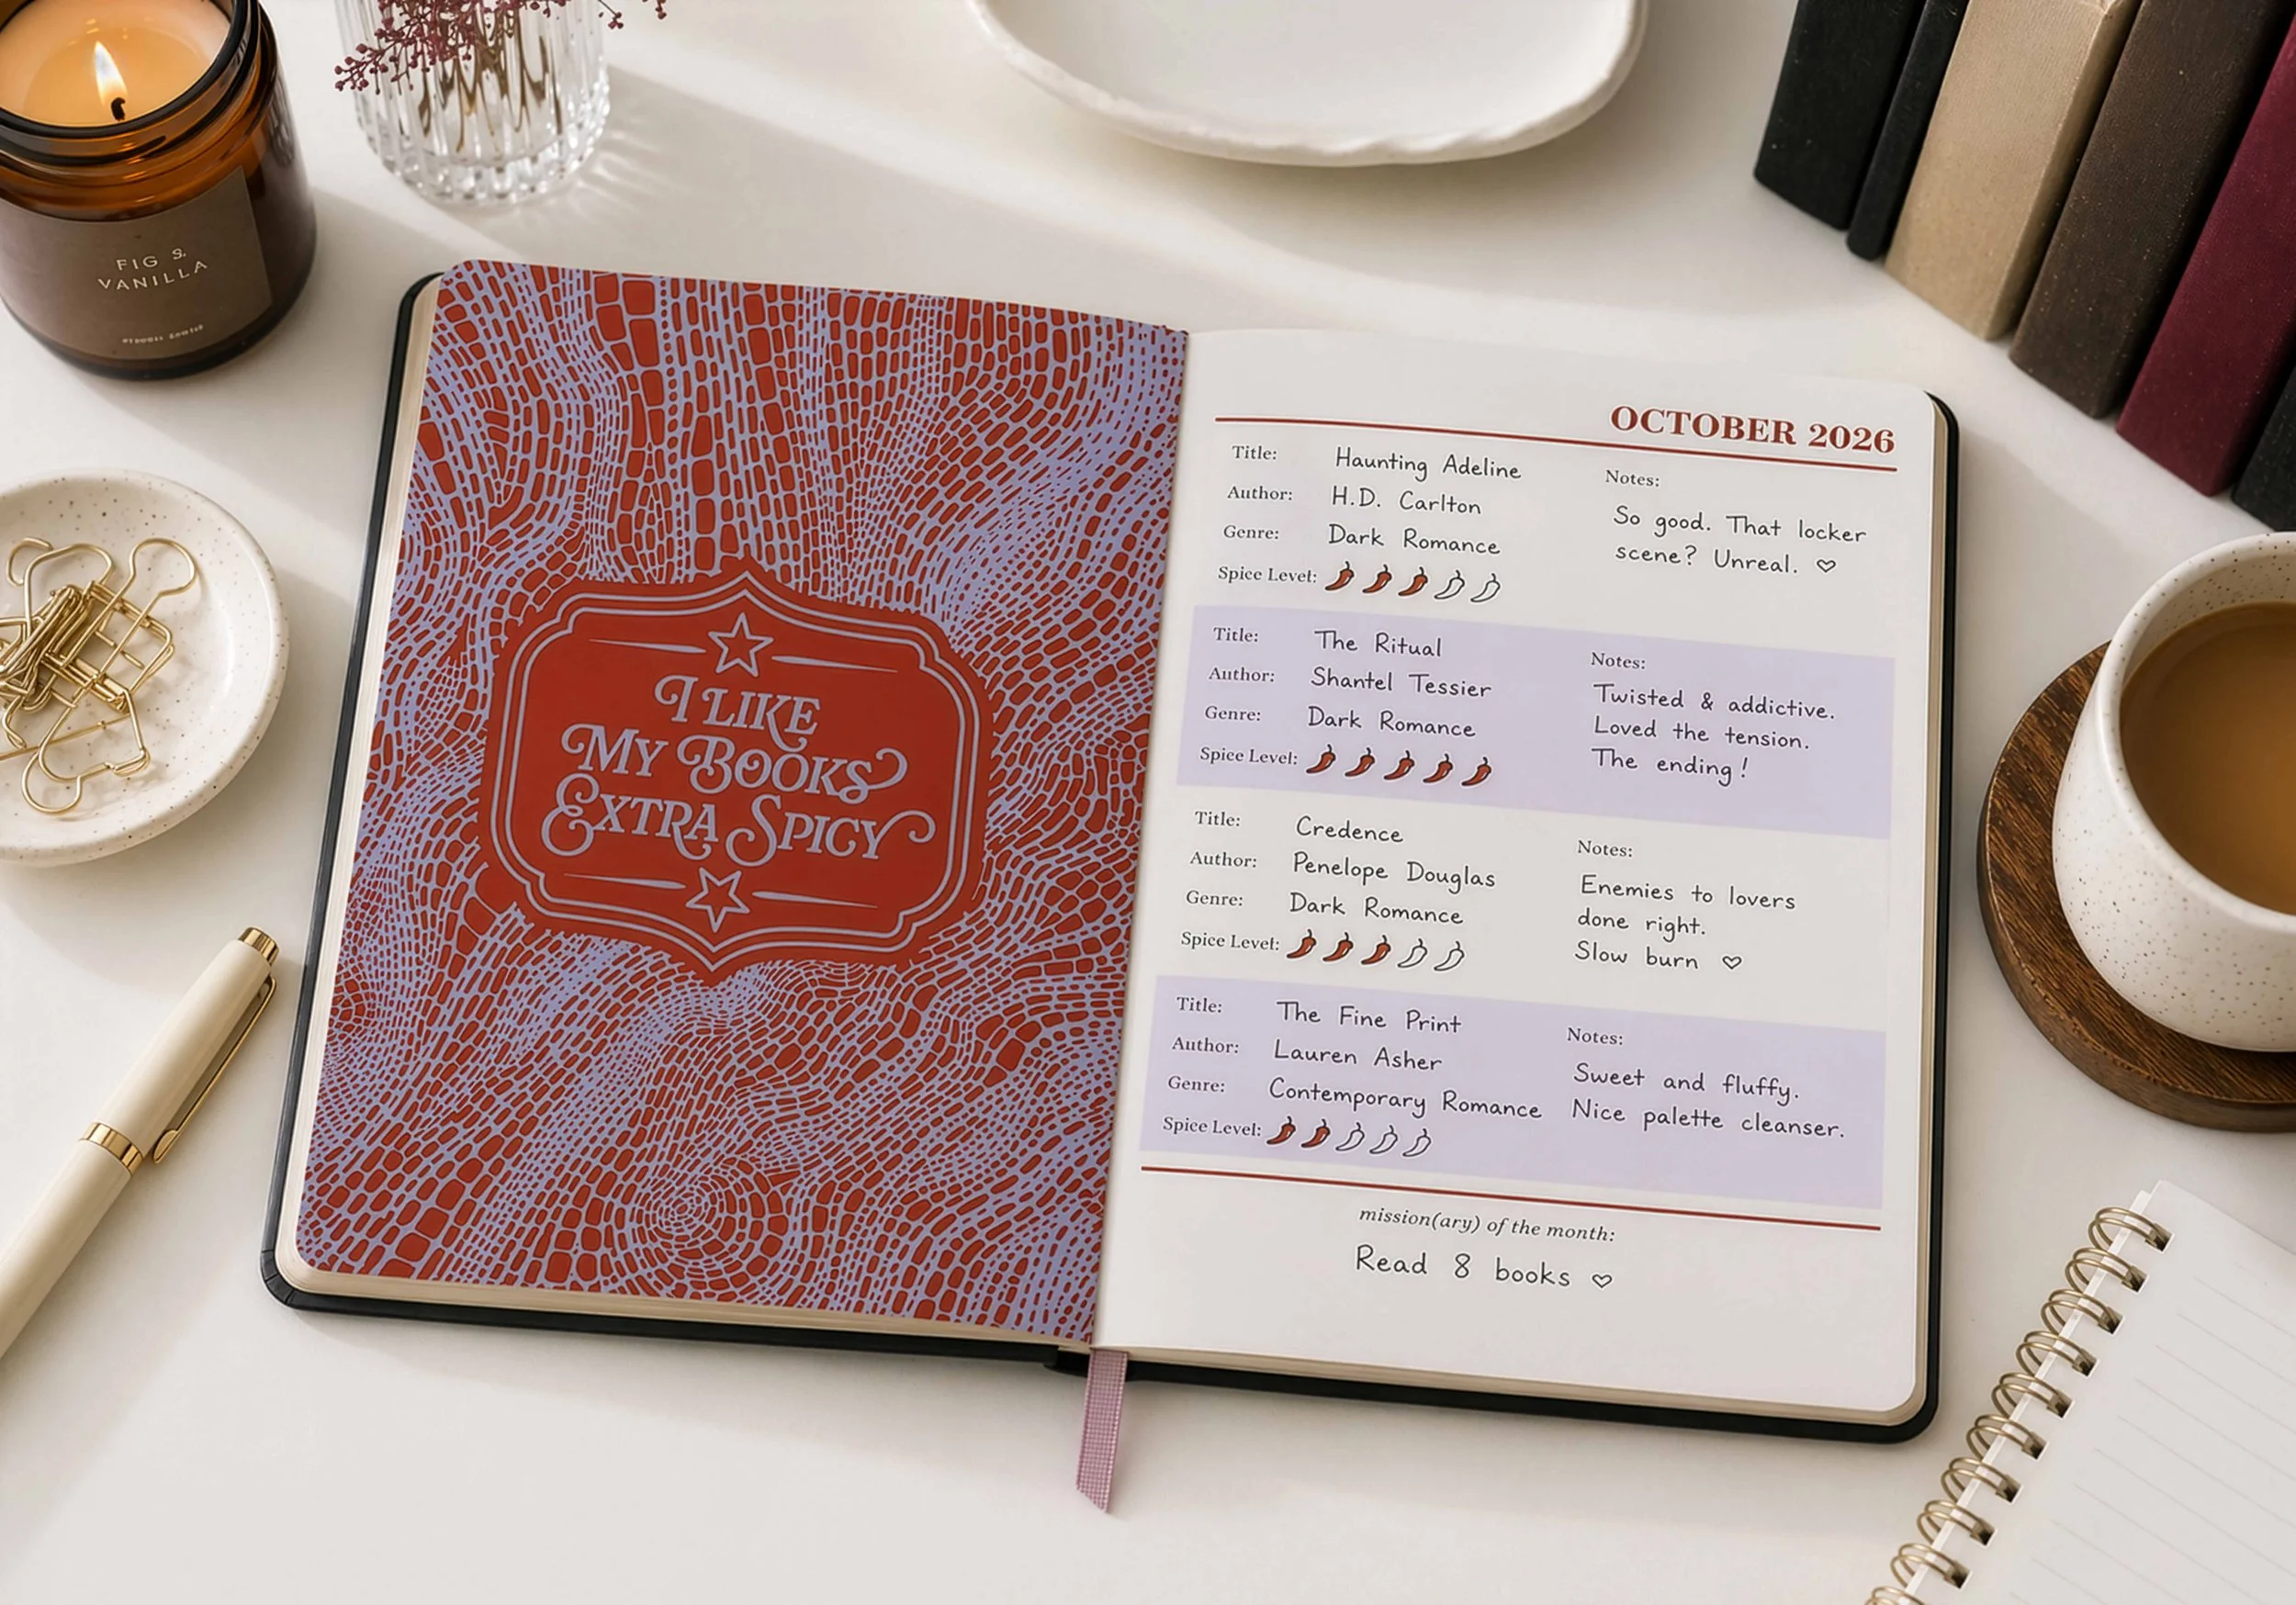 FIG &
VANILLA
I LIKE
MY BOOKS
EXTRA SPICY
OCTOBER 2026
Title: Haunting Adeline
Author: H.D. Carlton
Genre: Dark Romance
Spice Level:
Notes:
So good. That locker
scene? Unreal. ♡
Title: The Ritual
Author: Shantel Tessier
Genre: Dark Romance
Spice Level:
Notes:
Twisted & addictive.
Loved the tension.
The ending!
Title: Credence
Author: Penelope Douglas
Genre: Dark Romance
Spice Level:
Notes:
Enemies to lovers
done right.
Slow burn ♡
Title: The Fine Print
Author: Lauren Asher
Genre: Contemporary Romance
Spice Level:
Notes:
Sweet and fluffy.
Nice palette cleanser.
mission(ary) of the month:
Read 8 books ♡